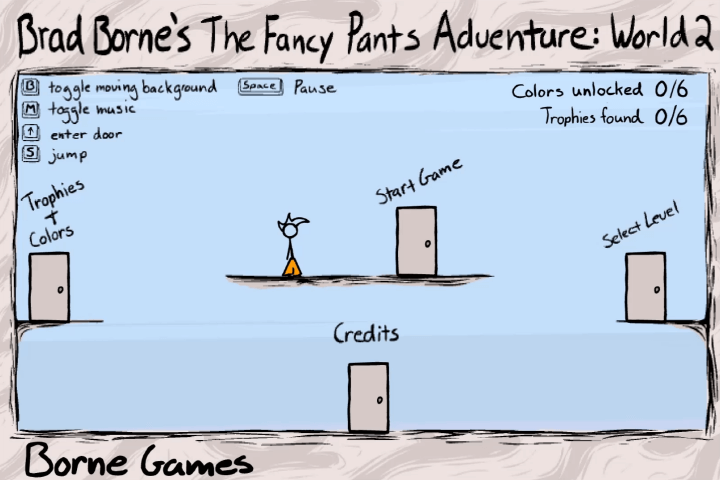 Brad Borne's The Fancy Pants Adventure: World 2
B toggle moving background Space Pause
M toggle music
↑ enter door
S jump
Colors unlocked 0/6
Trophies found 0/6
Trophies
+
Colors
Start Game
Select Level
Credits
Borne Games